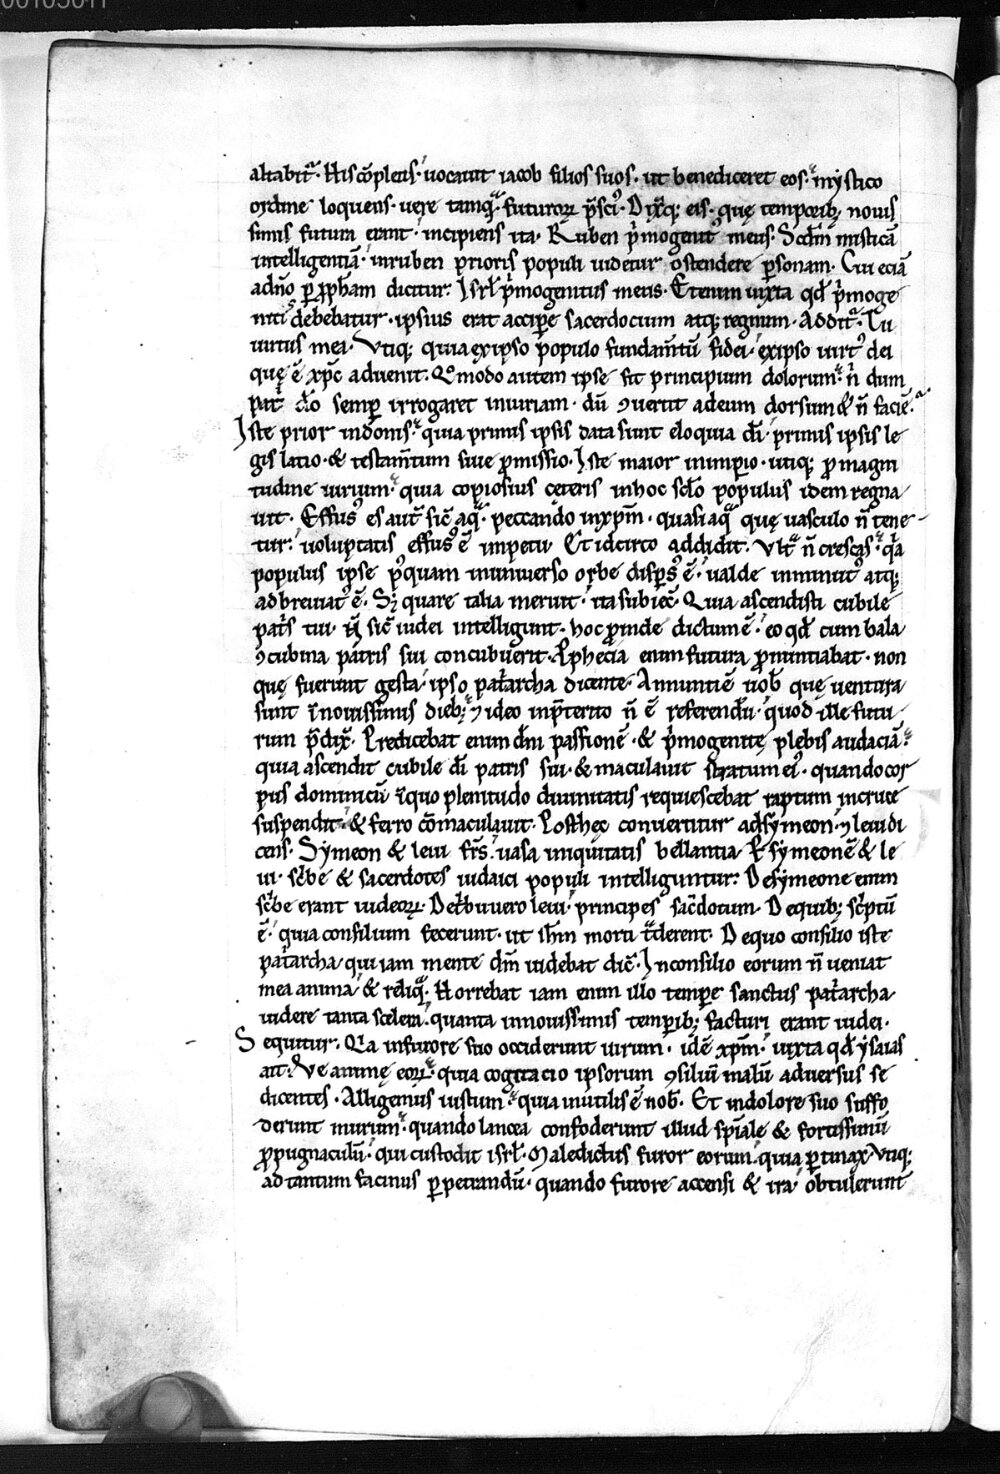 altabitᷓ. His cōpletis uocauit iacob filios suos. ut benediceret eos. mystico
ordine loquens. uere tamqᷓ futuroꝝ p̄sciꝰ. Dixitqꝫ eis. quę temporibꝫ nouis
simis futura erant. incipiens ita. Ruben p̄mogenitꝰ meus. Scd̄m misticā
intelligentiā. in ruben prioris populi uidetur ostendere ꝑsonam. Cui eciā
a dn̄o ꝑ ꝓph̄am dicitur. Isrl̄ p̄mogenitus meus. Etenim iuxta qđ p̄moge
niti debebatur. ipsius erat accipere sacerdocium atqꝫ regnum. Additᷓ. Tu
uirtus mea. Vtiqꝫ quia ex ipso populo fundam̄tū fidei. ex ipso uirtꝰ dei
quę ē xp̄c aduenit. Qͦmodo autem ipse fit principium dolorum. n̄ dum
patri dō semꝑ irrogaret iniuriam. dū ꝯuertit ad eum dorsum & n̄ faciē.
Iste prior in donis. quia primus ipsis data sunt eloquia di. primis ipsis le
gis latio. & testam̄tum siue ꝓmissio. Iste maior in imperio. utiqꝫ ꝓ magni
tudine uirium. quia copiosius ceteris in hoc sclo populus idem regna
uit. Effusꝰ es aut̄ sic̄ aqᷓ. peccando in xp̄m. quasi aqᷓ quę uasculo n̄ tene
tur. uoluptatis effusꝰ ē impetu. Et idcirco addidit. Vltᷓ n̄ crescas. qᷓa
populus ipse pꝰquam in uniuerso orbe disꝑsꝰ ē. ualde inminutꝰ atqꝫ
adbreuiatꝰ ē. Sꝫ quare talia meruit. ita subiec̄. Quia ascendisti cubile
patͥs tui. N̄ sic̄ iudei intelligunt. hoc ꝓinde dictum ē. eo qđ cum bala
ꝯcubina patris sui concubuerit. Ꝓphecia enim futura ꝓnuntiabat. non
quę fuerunt gesta. ipso patͥarcha dicente. Annuntiē uob̄ quę uentura
sunt ī nouissimis diebꝫ. ⁊ ideo in p̄terito n̄ ē referendū. quod ille futu
rum p̄dix̄. Predicebat enim dn̄i passionē. & p̄mogenitę plebis audaciā.
quia ascendit cubile di patris sui. & maculauit stratum eiꝰ. quando cor
pus dominicū ī quo plenitudo diuinitatis requiescebat raptum in cruce
suspendit. & ferro cōmaculauit. Post hęc conuertitur ad symeon. ⁊ leui di
cens. Symeon & leui fr̄s. uasa iniquitatis bellantia. P symeonē & le
ui. scͥbe & sacerdotes iudaici populi intelliguntur. De symeone enim
scͥbe erant iudeoꝝ. De tͥbu uero leui. principes sac̄dotum. De quibꝫ scͥptū
ē. quia consilium fecerunt. ut ih̄m morti tᷓderent. De quo consilio iste
patͥarcha. qui iam mente dm̄ uidebat dic̄. In consilio eorum n̄ ueniat
mea anima. & reliqᷓ. Horrebat iam enim illo tempore sanctus patͥarcha.
uidere tanta scelera. quanta in nouissimis temporibꝫ facturi erant iudei.
Sequitur. Qͥa in furore suo occiderunt uirum. idē xp̄m. iuxta qđ ysaias
ait. Ve animę eoꝝ. quia cogitacio ipsorum ꝯsiliū malū aduersus se
dicentes. Alligemus iustum. quia inutilis ē nob̄. Et in dolore suo suffo
derunt murum. quando lancea confoderunt illud spi̅ale & fortissimū
ꝓpugnaculū. qui custodit isrl̄. Maledictus furor eorum. quia ꝑtinax. Vtiqꝫ
ad tantum facinus ꝑpetrandū. quando furore accensi & ira. obtulerunt